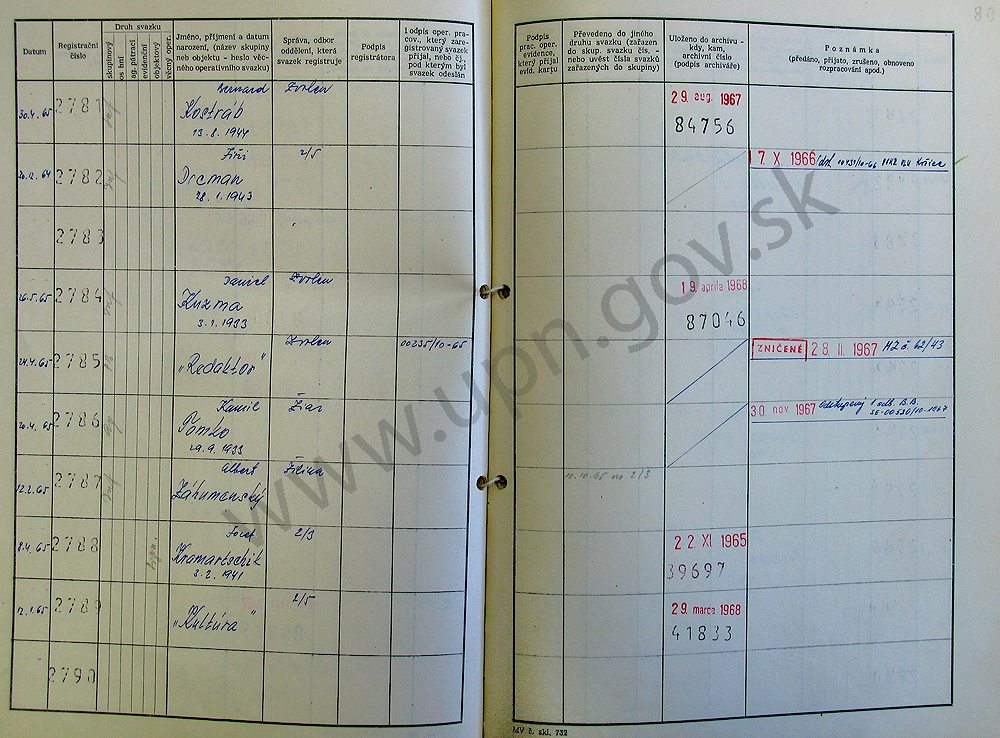 Datum
Registrační číslo
Druh svazku
skupinový
osobní
ag. pátrací
evidenční
objektový
věcný oper.
Jméno, příjmení a datum
narození, (název skupiny
neb objektu - heslo věc-
ného operativního svazku)
Správa, odbor
oddělení, která
svazek registruje
Podpis
registrátora
Podpis oper. pra-
cov., který zare-
gistrovaný svazek
přijal, nebo čj.,
pod kterým byl
svazek odeslán
Podpis
prac. oper.
evidence,
který přijal
evid. kartu
Převedeno do jiného
druhu svazku (zařazen
do skup. svazku čís. -
nebo uvést čísla svazků
zařazených do skupiny)
Uloženo do archivu -
kdy, kam,
archivní číslo
(podpis archiváře)
Poznámka
(předáno, přijato, zrušeno, obnoveno
rozpracování apod.)
30.4.65 2781 Bernard Zvolen
Kostráb
13.8.1944
29. aug. 1967
84756
2782 Jiří 2/5
Drcman
28.1.1943
17 X 1966
2783
26.5.65 2784 Daniel Zvolen
Kuzma
3.1.1933
19 apríla 1968
87046
24.4.65 2785 Zvolen 00235/10-65
„Redaktor"
ZNIČENÉ 28. II. 1967 MZ č. 62/43
20.4.65 2786 Kamil Žiar
Pomko
29.9.1933
30 nov. 1967 Odstúpený 1 odb. B.B.
SE-00520/10-1967
12.2.65 2787 Albert Žilina
Záhumenský
10.10.65 no 2/3
8.4.65 2788 Jozef 2/3
Kramartschik
3.2.1941
22 XI 1965
39697
12.1.65 2789 2/5
„Kultúra"
29. marca 1968
41833
2790
MV č. skl. 732
www.upn.gov.sk